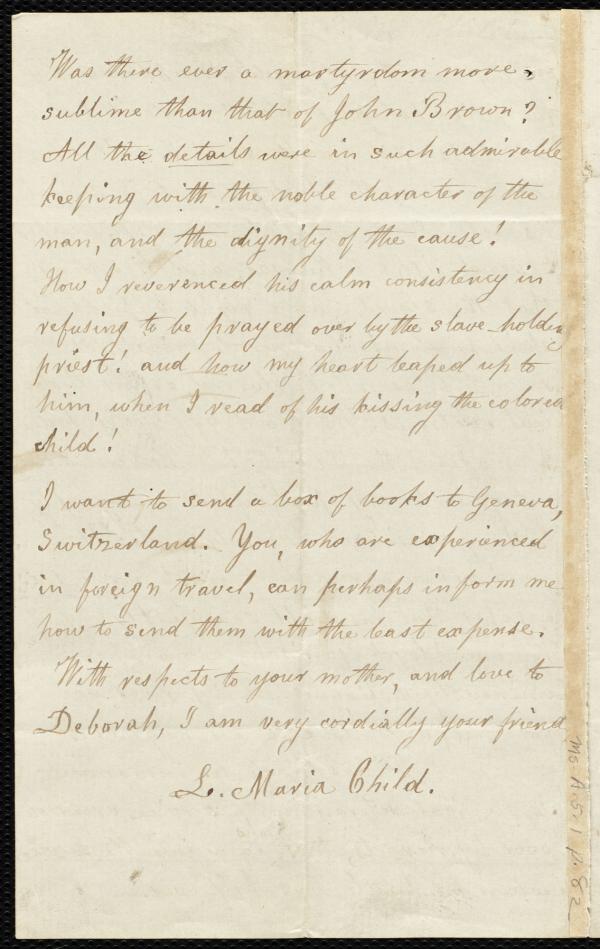 Was there ever a martyrdom more
sublime than that of John Brown?
All the details were in such admirable
keeping with the noble character of the
man, and the dignity of the cause!
How I reverenced his calm consistency in
refusing to be prayed over by the slave-holding
priest! and how my heart leaped up to
him, when I read of his kissing the colored
child!
I want to send a box of books to Geneva,
Switzerland. You, who are experienced
in foreign travel, can perhaps inform me
how to send them with the least expense.
With respects to your mother, and love to
Deborah, I am very cordially your friend
L. Maria Child.
Ms. A.5.1 p. 82